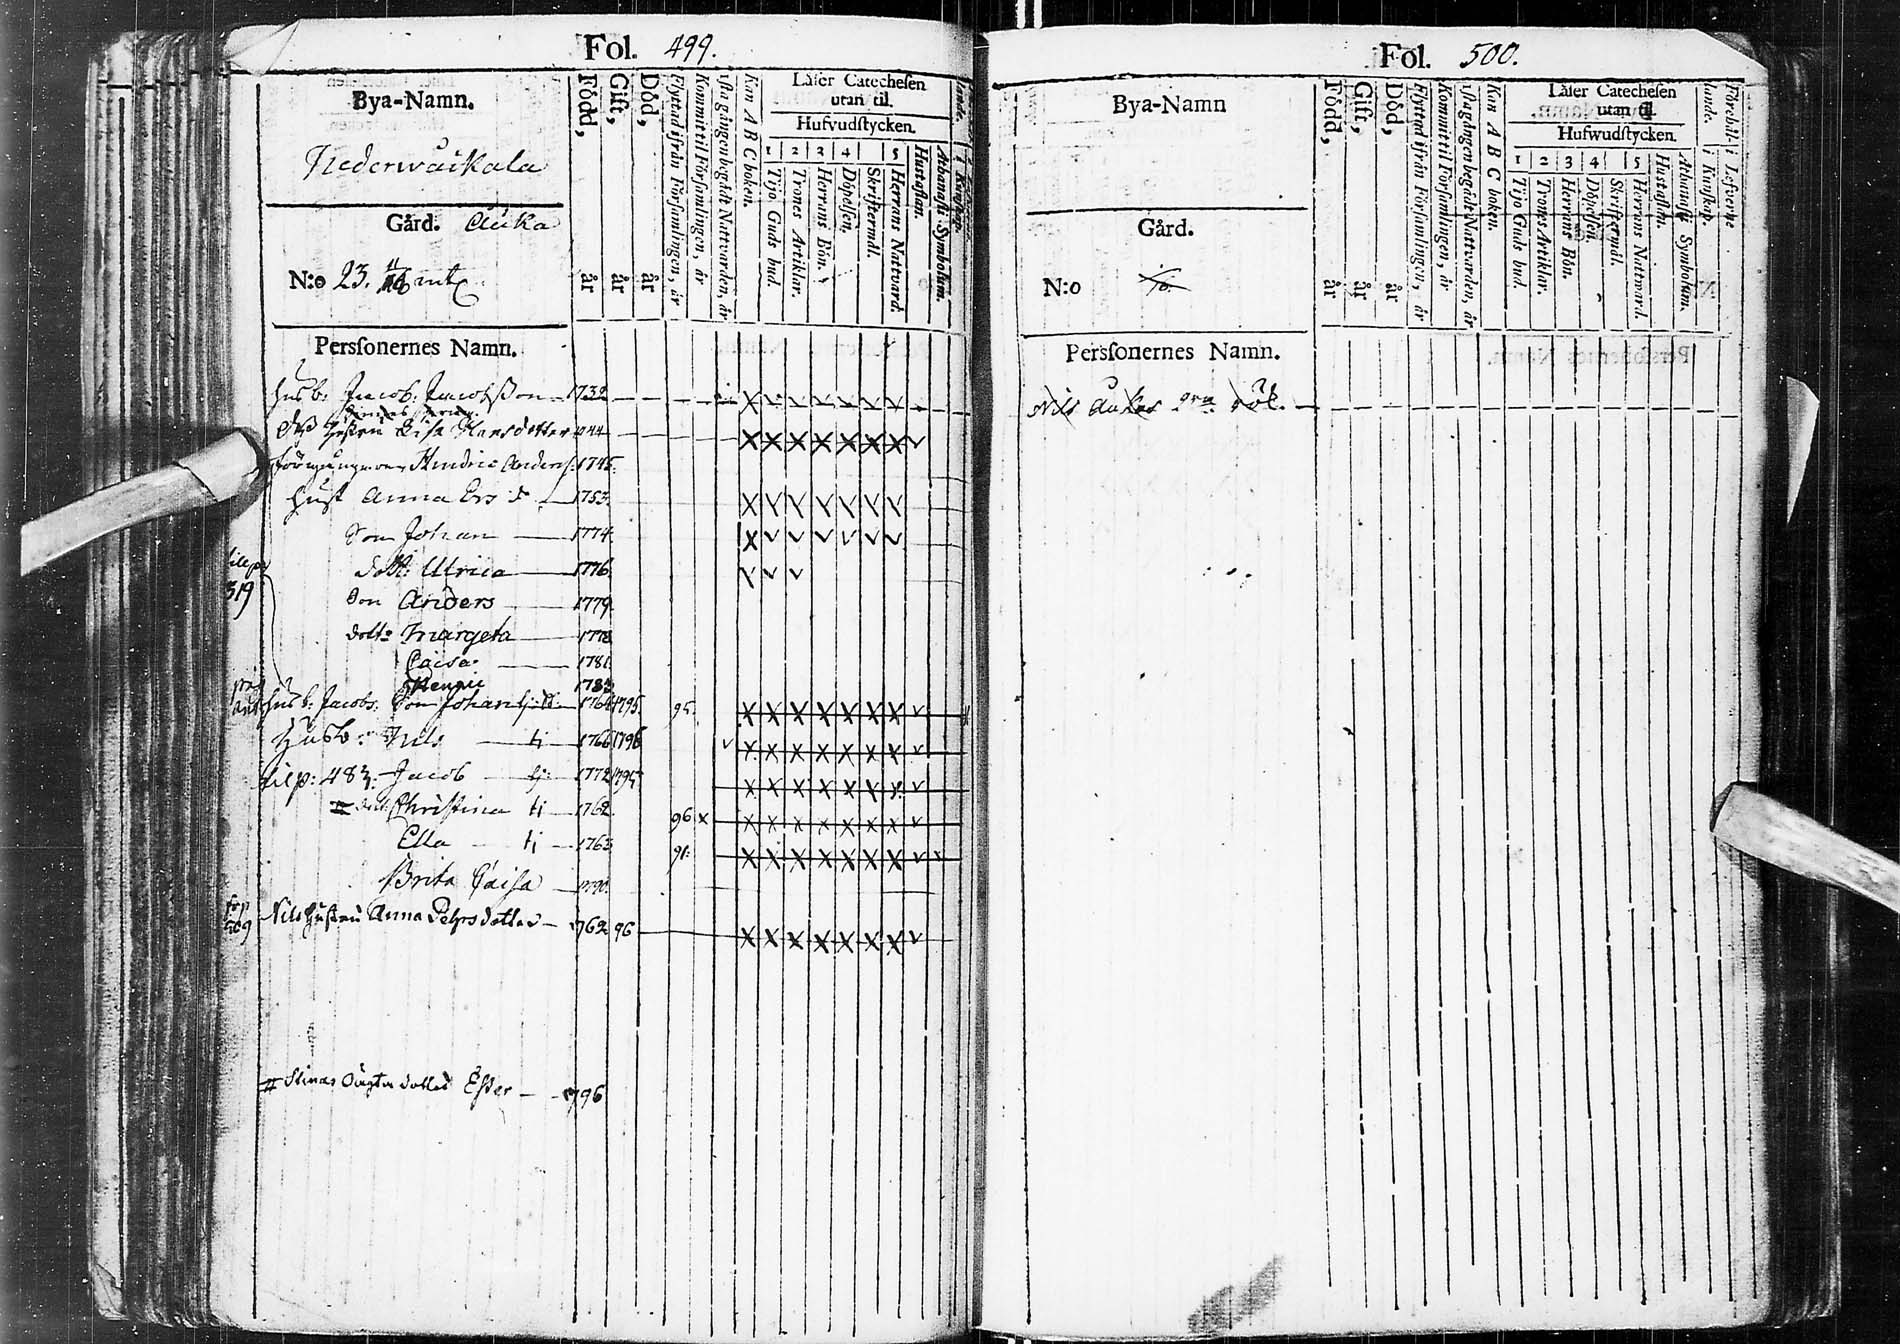 Fol. 499.
Bya-Namn.
Nederwäikala
Gård. Auka
N:o 23.
Född, år
Gift, år
Död, år
Flyttad ifrån Församlingen, år
Kommit til Församlingen, år
1sta gången begådt Nattvarden, år
Kan A B C boken.
Läser Catechesen
utan til.
Hufvudstycken.
1 2 3 4 5
Tijo Guds bud.
Trones Artiklar.
Herrans Bön.
Döpelsen.
Skriftermål.
Herrans Nattvard.
Hustaflan.
Athanasii Symbolum.
Personernes Namn.
Husb: Jacob Jacobsson 1732
Hustru Lisa Hansdotter 1744
Hindric Anders: 1745
Hust Anna Ers d 1753
Son Johan 1774
dott: Ulrica 1776
319
Son Anders 1779
dott: Margeta 1778
Caisa 1781
Henric 1783
Husb: Jacobs Son Johan 1764 1795 95
Husb: Nils tj 1766 1796
til p: 483 Jacob tj 1772 1795
Christina tj 1762 96 x
Ella tj 1763 91
Brita Caisa 1790
Nils Hustru Anna Pehrsdotter 1762 96
569
# Stinas dotter Ester 1796
Fol. 500.
Bya-Namn
Gård.
N:o
Född, år
Gift, år
Död, år
Flyttad ifrån Församlingen, år
Kommit til Församlingen, år
1sta gången begådt Nattvarden, år
Kan A B C boken.
Läser Catechesen
utan til.
Hufwudstycken.
1 2 3 4 5
Tijo Guds bud.
Trones Artiklar.
Herrans Bön.
Döpelsen.
Skriftermål.
Herrans Nattward.
Hustaflan.
Athanasii Symbolum.
Personernes Namn.
Nils Aukas